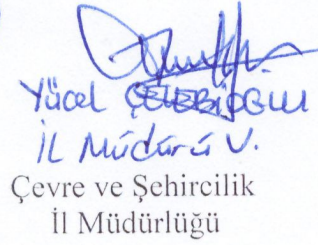 Yücel ÇELEBİOĞLU
İL Müdürü V.
Çevre ve Şehircilik
İl Müdürlüğü